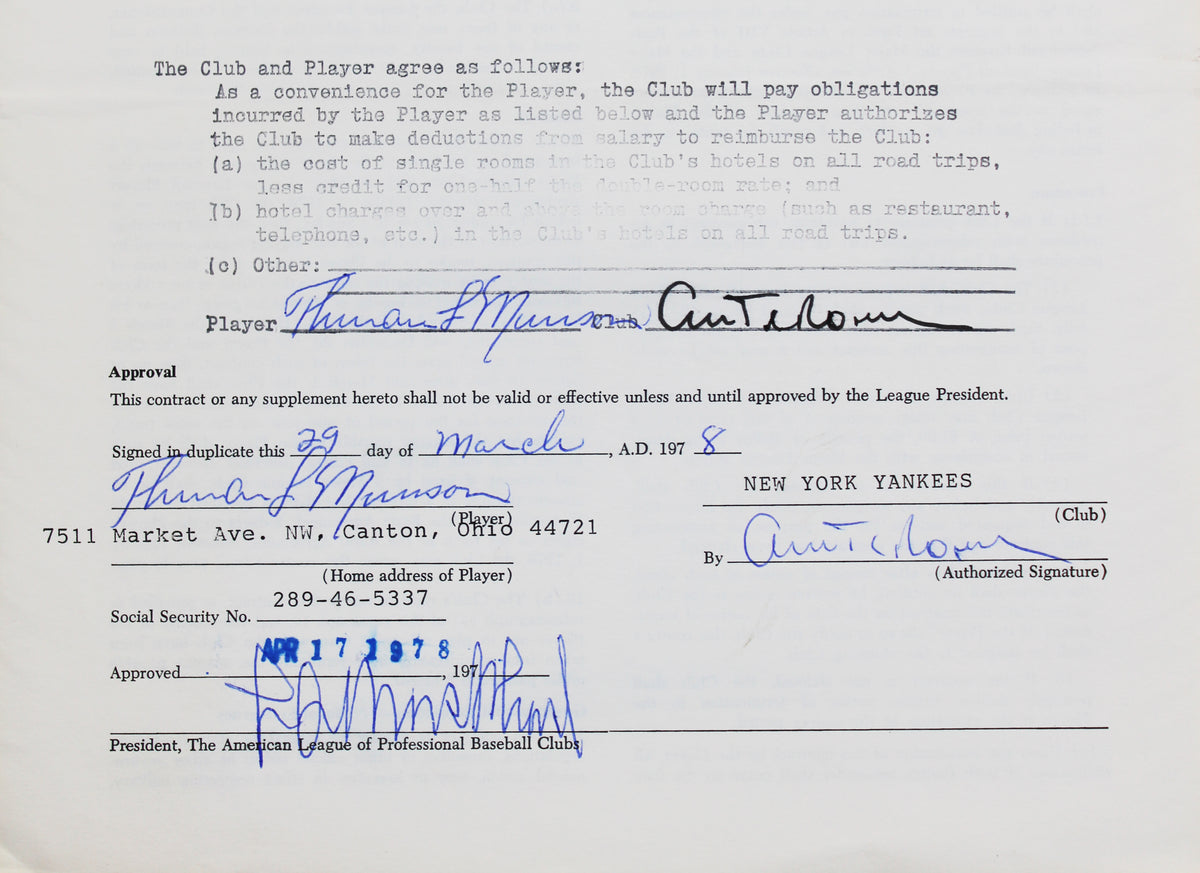 The Club and Player agree as follows:
As a convenience for the Player, the Club will pay obligations
incurred by the Player as listed below and the Player authorizes
the Club to make deductions from salary to reimburse the Club:
(a) the cost of single rooms in the Club's hotels on all road trips,
less credit for one-half the double-room rate; and
(b) hotel charges over and above the room charge (such as restaurant,
telephone, etc.) in the Club's hotels on all road trips.
(c) Other:
Player Thurman L Munson Club
Approval
This contract or any supplement hereto shall not be valid or effective unless and until approved by the League President.
Signed in duplicate this 29 day of March, A.D. 197 8
Thurman L Munson
NEW YORK YANKEES
(Player)
(Club)
7511 Market Ave. NW, Canton, Ohio 44721
By
(Home address of Player)
(Authorized Signature)
289-46-5337
Social Security No.
APR 17 1978
Approved , 197
President, The American League of Professional Baseball Clubs